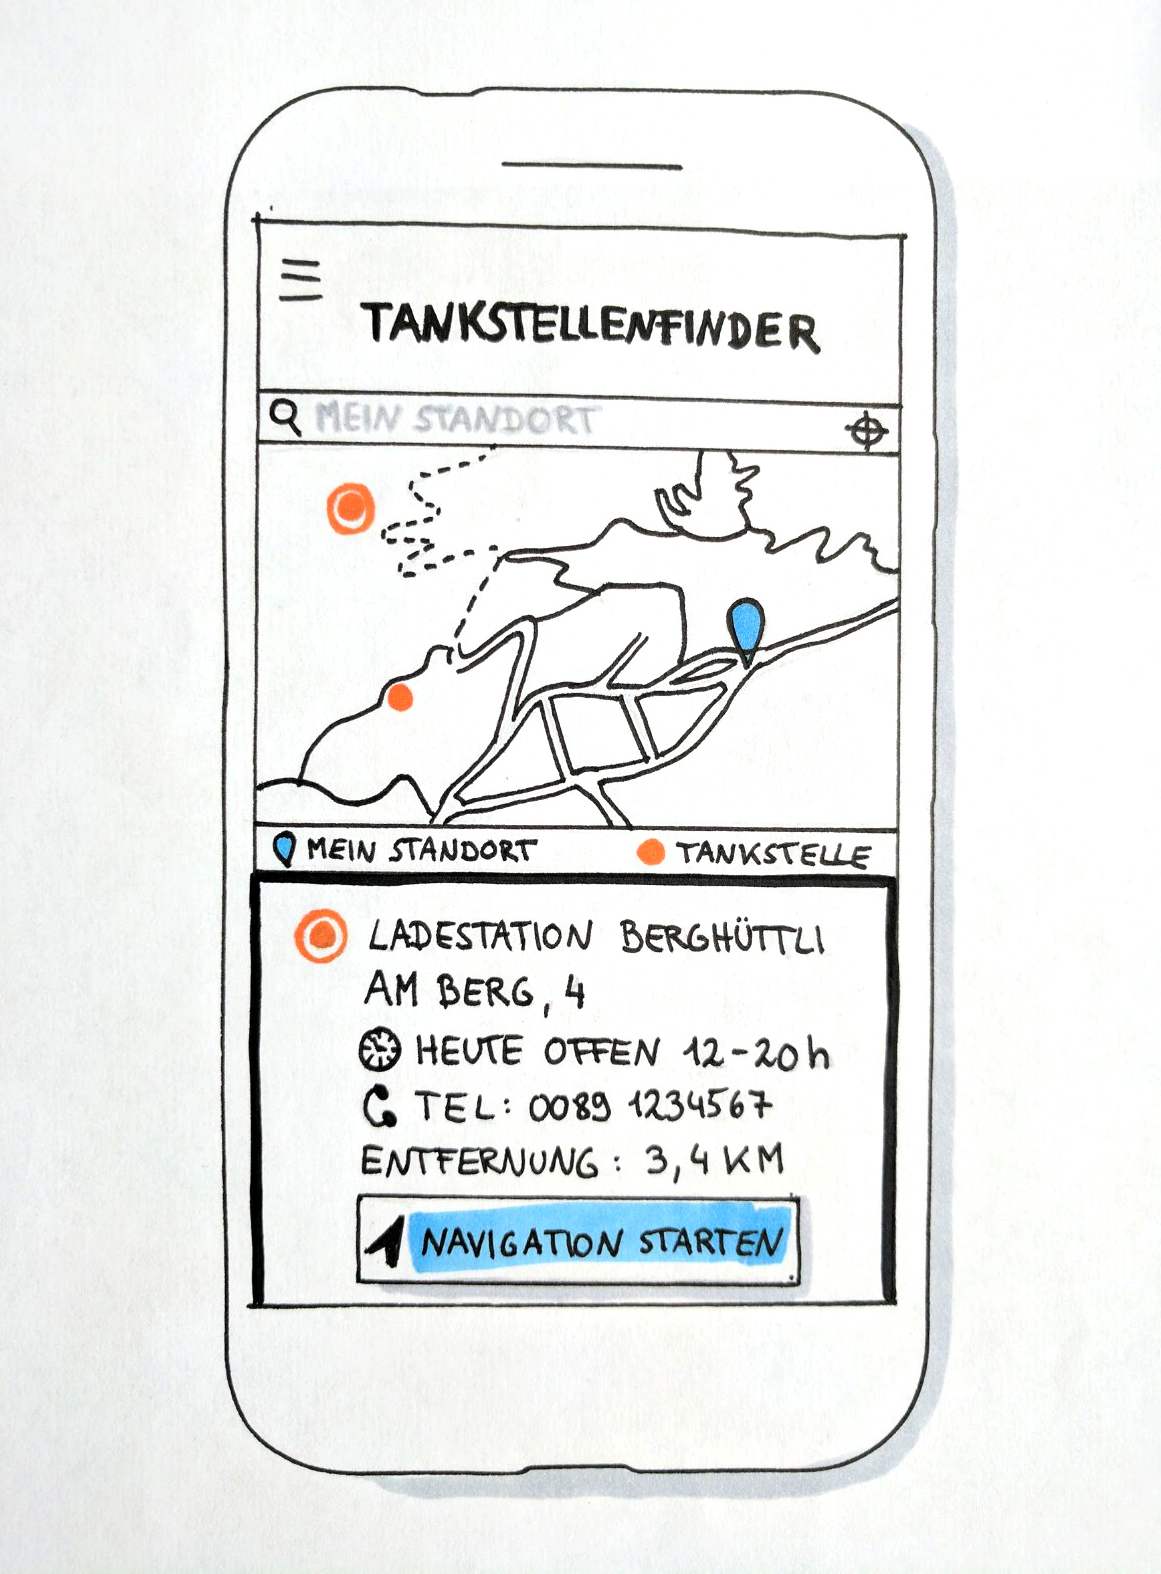 TANKSTELLENFINDER
MEIN STANDORT
MEIN STANDORT
TANKSTELLE
LADESTATION BERGHÜTTLI
AM BERG, 4
HEUTE OFFEN 12-20h
TEL: 0089 1234567
ENTFERNUNG: 3,4 KM
NAVIGATION STARTEN